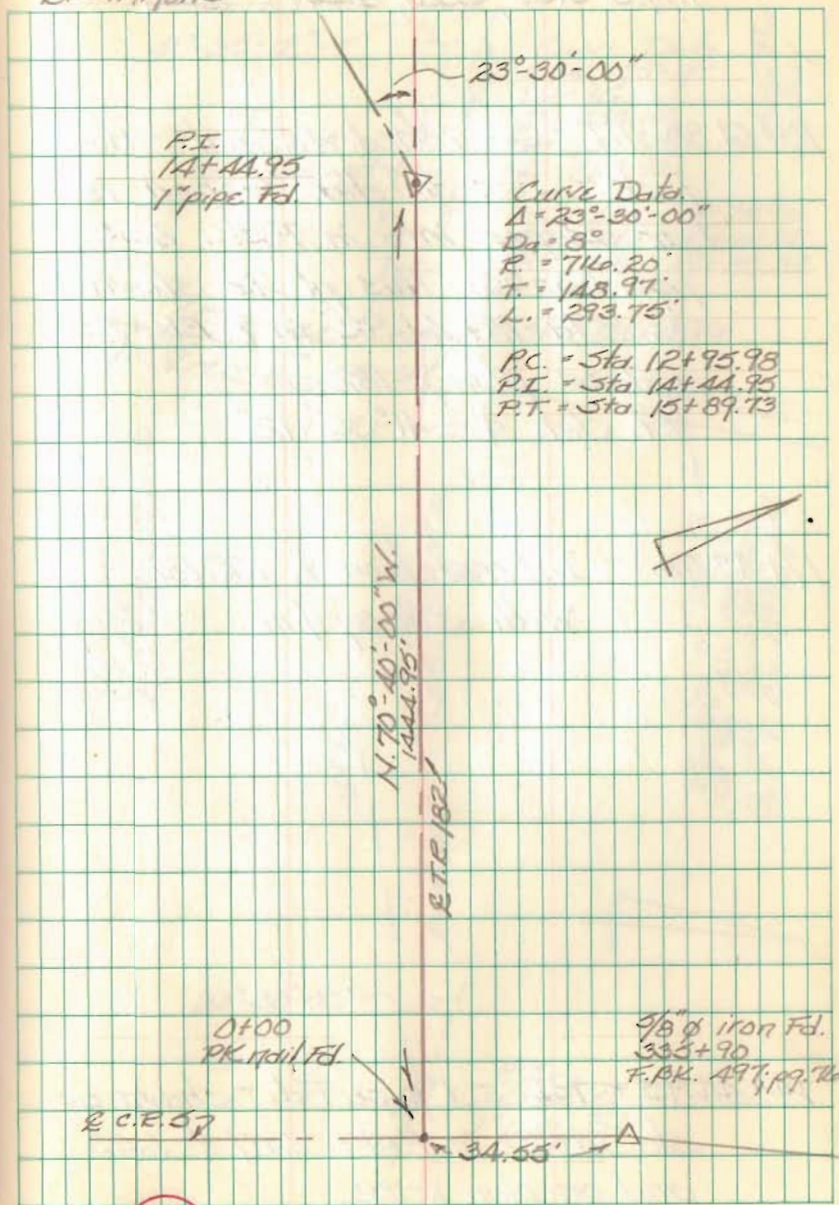 23°-30'-00"
P.I.
14+44.95
1" pipe Fd.
Curve Data.
Δ = 23°-30'-00"
Da = 8°
R. = 716.20'
T. = 148.97'
L. = 293.75'
P.C. = Sta. 12+95.98
P.I. = Sta 14+44.95
P.T. = Sta 15+89.73
N. 70°-40'-00" W.
1444.95'
℄ T.R. 182
0+00
PK nail Fd.
5/8" ø iron Fd.
335+90
F.BK. 497; pg. 76
℄ C.R. 57
34.55'